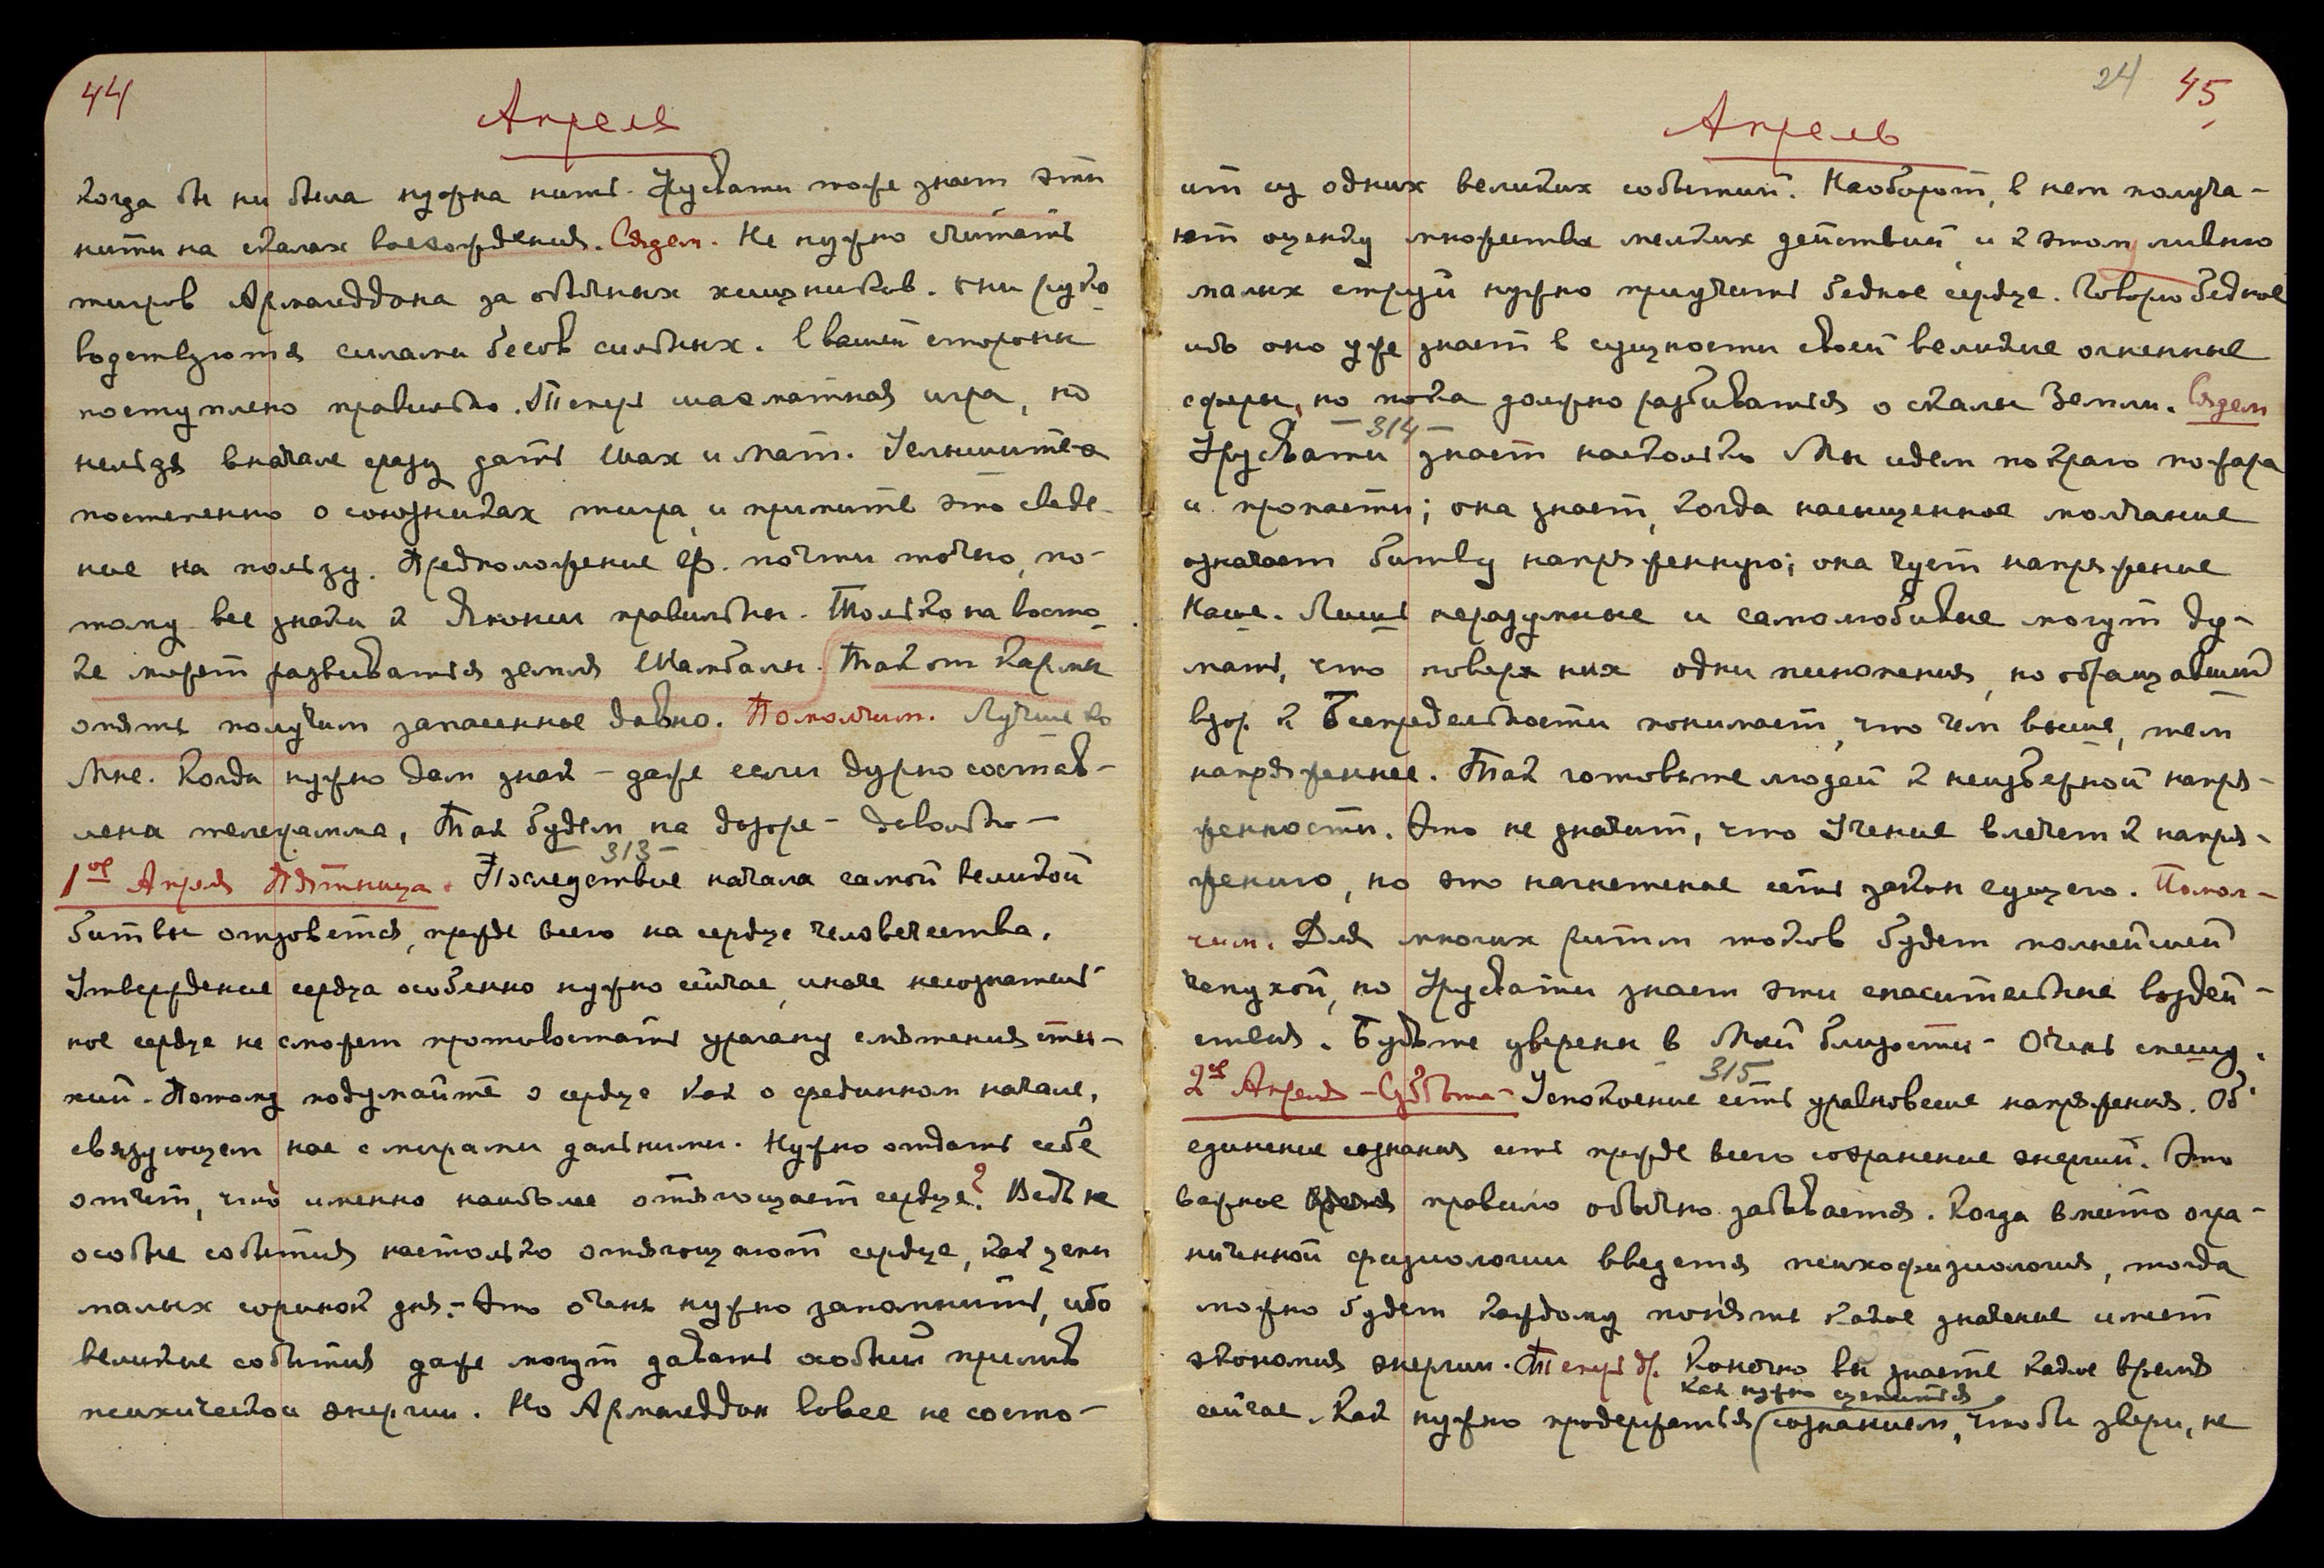 44
Апреля
когда бы ни была нужна нить. Урусвати тоже знает эти
нити на скалах восхождения. Сядем. Не нужно считать
тигров Армагеддона за обычных хищников. Они руко-
водствуются силами бесов сильных. С вашей стороны
поступлено правильно. Теперь шахматная игра, но
нельзя вначале сразу дать шах и мат. Услышите
постепенно о союзниках тигра, и примите это сведе-
ние на пользу. Предположение почти точно, по-
тому все знаки к Японии правильны. Только на восто-
ке может развиваться земля Шамбалы. Так от кармы
опять получим запасенное давно. Помолчим. Лучше ко
Мне. Когда нужно дам знак – даже если дурно состав-
лена телеграмма, Так будем на дозоре – довольно –
– 313 –
1ое Апреля Пятница. Последствие начала самой великой
битвы отзовется, прежде всего на сердце человечества.
Утверждение сердца особенно нужно сейчас, иначе несознатель-
ное сердце не сможет противостать урагану смятения сти-
хий. Потому подумайте о сердце как о срединном начале,
связующем нас с мирами дальними. Нужно отдать себе
отчет, что именно наиболее отягощает сердце? Ведь не
особые события настолько отягощают сердце, как цепи
малых соринок дня. – Это очень нужно запомнить, ибо
великие события даже могут давать особый прилив
психической энергии. Но Армагеддон вовсе не состо-
24 45
Апрель
ит из одних великих событий. Наоборот, в нем получа-
ют оценку множества мелких действий, и к этому ливню
малых струй нужно приучить бедное сердце. Говорю бедное
ибо оно уже знает в сущности своей великие огненные
сферы, но пока должно разбиваться о скалы Земли. Сядем
– 314 –
Урусвати знает насколько Мы идем по краю пожара
и пропасти; она знает, когда насыщенное молчание
означает битву напряженную; она чует напряжение
Наше. Лишь неразумные и самолюбивые могут ду-
мать, что поверх них одни песнопения, но обращавший
взор к Беспредельности понимает, что чем выше, тем
напряженнее. Так готовьте людей к неизбежной напря-
женности. Это не значит, что Учение влечет к напря-
жению, но это нагнетение есть закон сущего. Помол-
чим. Для многих ритм токов будет полнейшей
чепухой, но Урусвати знает эти спасительные воздей-
ствия. Будьте уверены в Моей близости – Очень спешу.
315
2ое Апреля – Суббота – Успокоение есть уравновесие напряжения. Об'
единение сознания есть прежде всего сохранение энергии. Это
важное правило обычно забывается. Когда вместо огра-
ниченной физиологии введется психофизиология, тогда
можно будет каждому понять какое значение имеет
экономия энергии. Теперь др. Конечно вы знаете какое время
как нужно сцепиться
сейчас. Как нужно продержаться (сознанием, чтобы звери, не